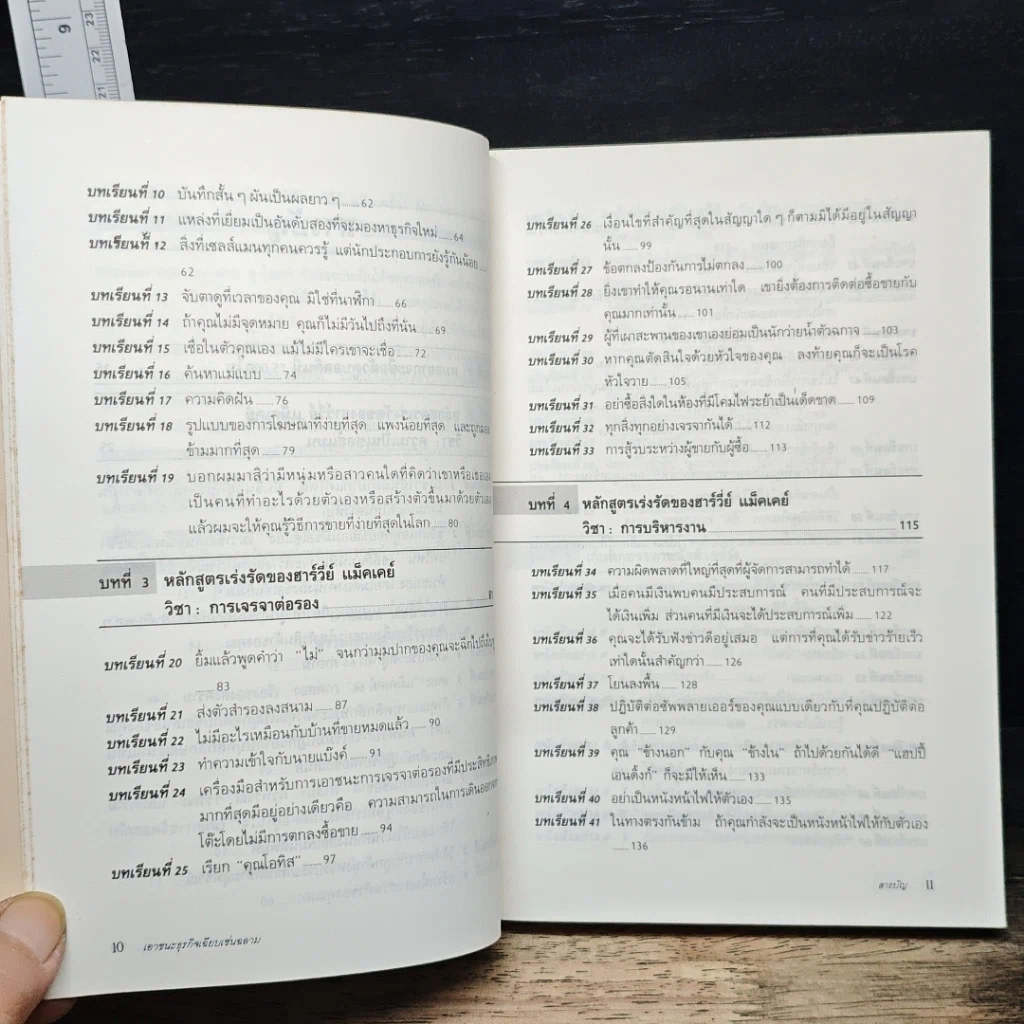 9
23
22
21
บทเรียนที่ 10 บันทึกสั้น ๆ ผันเป็นผลยาว ๆ ...... 62
บทเรียนที่ 11 แหล่งที่เยี่ยมเป็นอันดับสองที่จะมองหาธุรกิจใหม่ ...... 64
บทเรียนที่ 12 สิ่งที่เซลส์แมนทุกคนควรรู้ แต่นักประกอบการยังรู้กันน้อย ......
62
บทเรียนที่ 13 จับตาดูที่เวลาของคุณ มิใช่ที่นาฬิกา ...... 66
บทเรียนที่ 14 ถ้าคุณไม่มีจุดหมาย คุณก็ไม่มีวันไปถึงที่นั่น ...... 69
บทเรียนที่ 15 เชื่อในตัวคุณเอง แม้ไม่มีใครเขาจะเชื่อ ...... 72
บทเรียนที่ 16 ค้นหาแม่แบบ ...... 74
บทเรียนที่ 17 ความคิดฝัน ...... 76
บทเรียนที่ 18 รูปแบบของการโฆษณาที่ง่ายที่สุด แพงน้อยที่สุด และถูกมอง
ข้ามมากที่สุด ...... 79
บทเรียนที่ 19 บอกผมมาสิว่ามีหนุ่มหรือสาวคนใดที่คิดว่าเขาหรือเธอเอง
เป็นคนที่ทำอะไรด้วยตัวเองหรือสร้างตัวขึ้นมาด้วยตัวเอง
แล้วผมจะให้คุณรู้วิธีการขายที่ง่ายที่สุดในโลก ...... 80
บทที่ 3 หลักสูตรเร่งรัดของฮาร์วี่ย์ แม็คเคย์
วิชา : การเจรจาต่อรอง
บทเรียนที่ 20 ยิ้มแล้วพูดคำว่า "ไม่" จนกว่ามุมปากของคุณจะฉีกไปถึงใบหู
...... 83
บทเรียนที่ 21 ส่งตัวสำรองลงสนาม ...... 87
บทเรียนที่ 22 ไม่มีอะไรเหมือนกับบ้านที่ขายหมดแล้ว ...... 90
บทเรียนที่ 23 ทำความเข้าใจกับนายแบ๊งค์ ...... 91
บทเรียนที่ 24 เครื่องมือสำหรับการเอาชนะการเจรจาต่อรองที่มีประสิทธิภาพ
มากที่สุดมีอยู่อย่างเดียวคือ ความสามารถในการเดินออกจาก
โต๊ะโดยไม่มีการตกลงซื้อขาย ...... 94
บทเรียนที่ 25 เรียก "คุณโอทิส" ...... 97
10 เอาชนะธุรกิจเฉียบเช่นฉลาม
บทเรียนที่ 26 เงื่อนไขที่สำคัญที่สุดในสัญญาใด ๆ ก็ตามมิได้มีอยู่ในสัญญา
นั้น ...... 99
บทเรียนที่ 27 ข้อตกลงป้องกันการไม่ตกลง ...... 100
บทเรียนที่ 28 ยิ่งเขาทำให้คุณรอนานเท่าใด เขายิ่งต้องการติดต่อซื้อขายกับ
คุณมากเท่านั้น ...... 101
บทเรียนที่ 29 ผู้ที่เผาสะพานของเขาเองย่อมเป็นนักว่ายน้ำตัวฉกาจ ...... 103
บทเรียนที่ 30 หากคุณตัดสินใจด้วยหัวใจของคุณ ลงท้ายคุณก็จะเป็นโรค
หัวใจวาย ...... 105
บทเรียนที่ 31 อย่าซื้อสิ่งใดในห้องที่มีโคมไฟระย้าเป็นเด็ดขาด ...... 109
บทเรียนที่ 32 ทุกสิ่งทุกอย่างเจรจากันได้ ...... 112
บทเรียนที่ 33 การสู้รบระหว่างผู้ขายกับผู้ซื้อ ...... 113
บทที่ 4 หลักสูตรเร่งรัดของฮาร์วี่ย์ แม็คเคย์
วิชา : การบริหารงาน ...... 115
บทเรียนที่ 34 ความผิดพลาดที่ใหญ่ที่สุดที่ผู้จัดการสามารถทำได้ ...... 117
บทเรียนที่ 35 เมื่อคนมีเงินพบคนมีประสบการณ์ คนที่มีประสบการณ์จะ
ได้เงินเพิ่ม ส่วนคนที่มีเงินจะได้ประสบการณ์เพิ่ม ...... 122
บทเรียนที่ 36 คุณจะได้รับฟังข่าวดีอยู่เสมอ แต่การที่คุณได้รับข่าวร้ายเร็ว
เท่าใดนั้นสำคัญกว่า ...... 126
บทเรียนที่ 37 โยนลงพื้น ...... 128
บทเรียนที่ 38 ปฏิบัติต่อซัพพลายเออร์ของคุณแบบเดียวกับที่คุณปฏิบัติต่อ
ลูกค้า ...... 129
บทเรียนที่ 39 คุณ "ช้างนอก" กับคุณ "ช้างใน" ถ้าไปด้วยกันได้ดี "แฮปปี้
เอนดิ้งก์" ก็จะมีให้เห็น ...... 133
บทเรียนที่ 40 อย่าเป็นหนังหน้าไฟให้ตัวเอง ...... 135
บทเรียนที่ 41 ในทางตรงกันข้าม ถ้าคุณกำลังจะเป็นหนังหน้าไฟให้กับตัวเอง
...... 136
สารบัญ 11